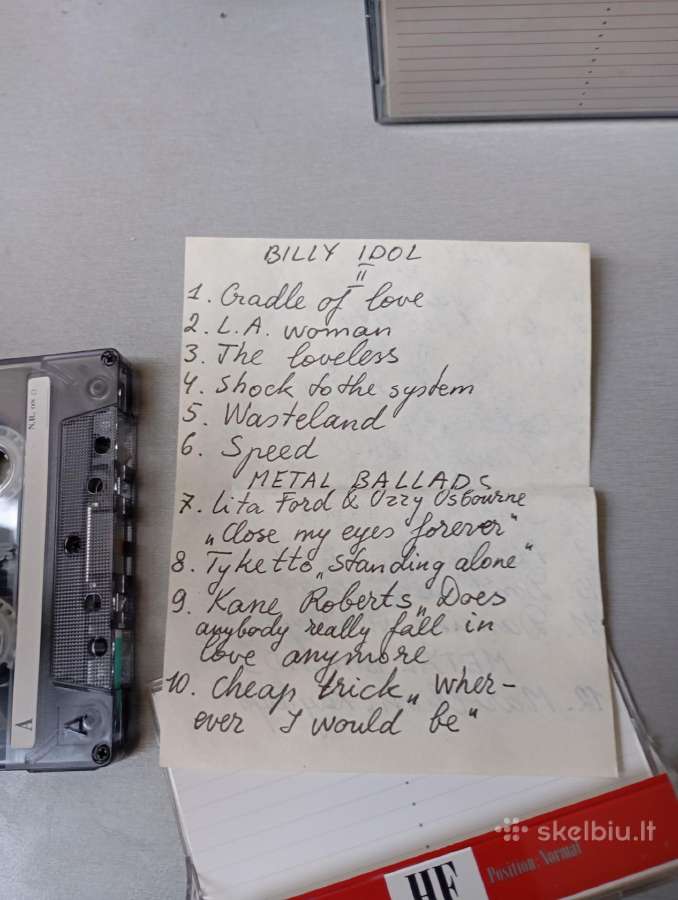 BILLY IDOL
II
1. Cradle of love
2. L.A. woman
3. The loveless
4. Shock to the system
5. Wasteland
6. Speed
METAL BALLADS
7. Lita Ford & Ozzy Osbourne
„Close my eyes forever"
8. Tyketto „Standing alone"
9. Kane Roberts „Does
anybody really fall in
love anymore
10. Cheap trick „Wher-
ever I would be"
N.R.
A
A
skelbiu.lt
HF
Position: Normal